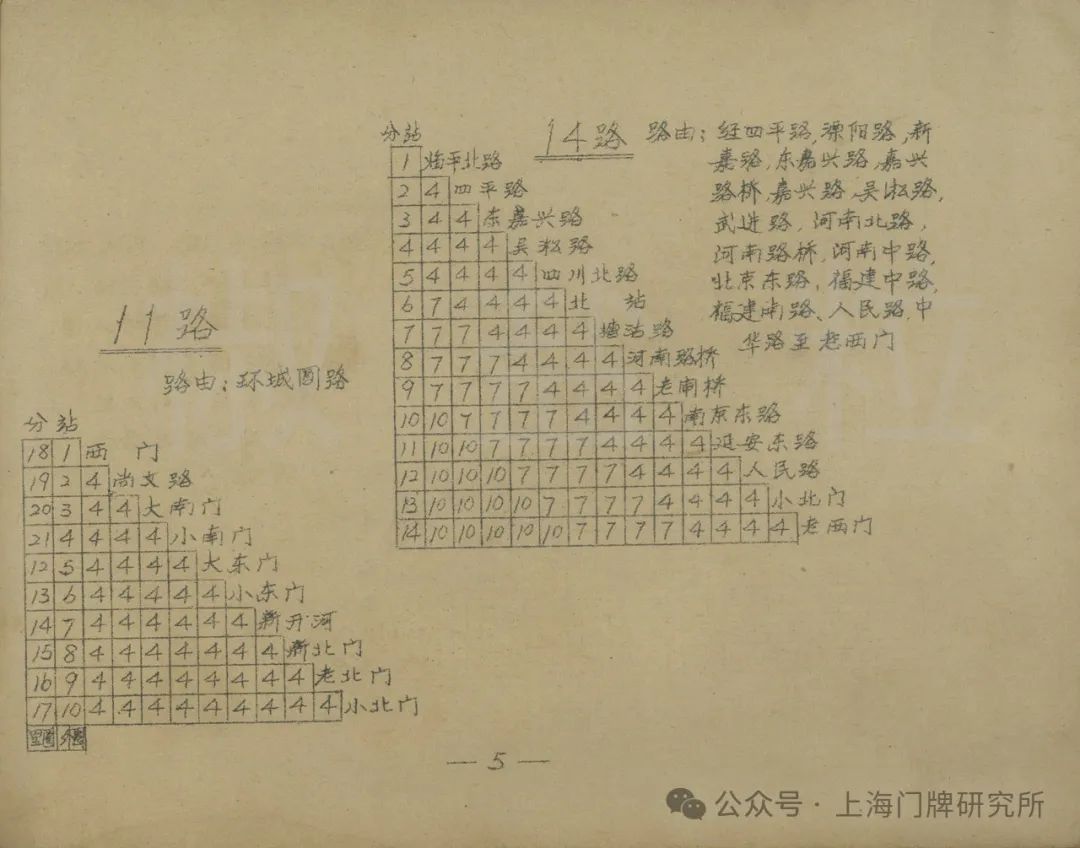 11路
路由：环城圆路
分站
18 1 西 门
19 2 4 尚文路
20 3 4 4 大南门
21 4 4 4 4 小南门
12 5 4 4 4 4 大东门
13 6 4 4 4 4 4 小东门
14 7 4 4 4 4 4 4 新开河
15 8 4 4 4 4 4 4 4 新北门
16 9 4 4 4 4 4 4 4 4 老北门
17 10 4 4 4 4 4 4 4 4 4 小北门
里圈 外圈
分站
14路
路由：经四平路,溧阳路,新
嘉路,东嘉兴路,嘉兴
路桥,嘉兴路,吴淞路,
武进路,河南北路,
河南路桥,河南中路,
北京东路,福建中路,
福建南路、人民路,中
华路至老西门
1 临平北路
2 4 四平路
3 4 4 东嘉兴路
4 4 4 4 吴淞路
5 4 4 4 4 四川北路
6 7 4 4 4 4 北 站
7 7 7 4 4 4 4 塘沽路
8 7 7 7 4 4 4 4 河南路桥
9 7 7 7 7 4 4 4 4 老闸桥
10 10 7 7 7 7 4 4 4 4 南京东路
11 10 10 7 7 7 7 4 4 4 4 延安东路
12 10 10 10 7 7 7 7 4 4 4 4 人民路
13 10 10 10 10 7 7 7 7 4 4 4 4 小北门
14 10 10 10 10 10 7 7 7 7 4 4 4 4 老西门
— 5 —
公众号 · 上海门牌研究所